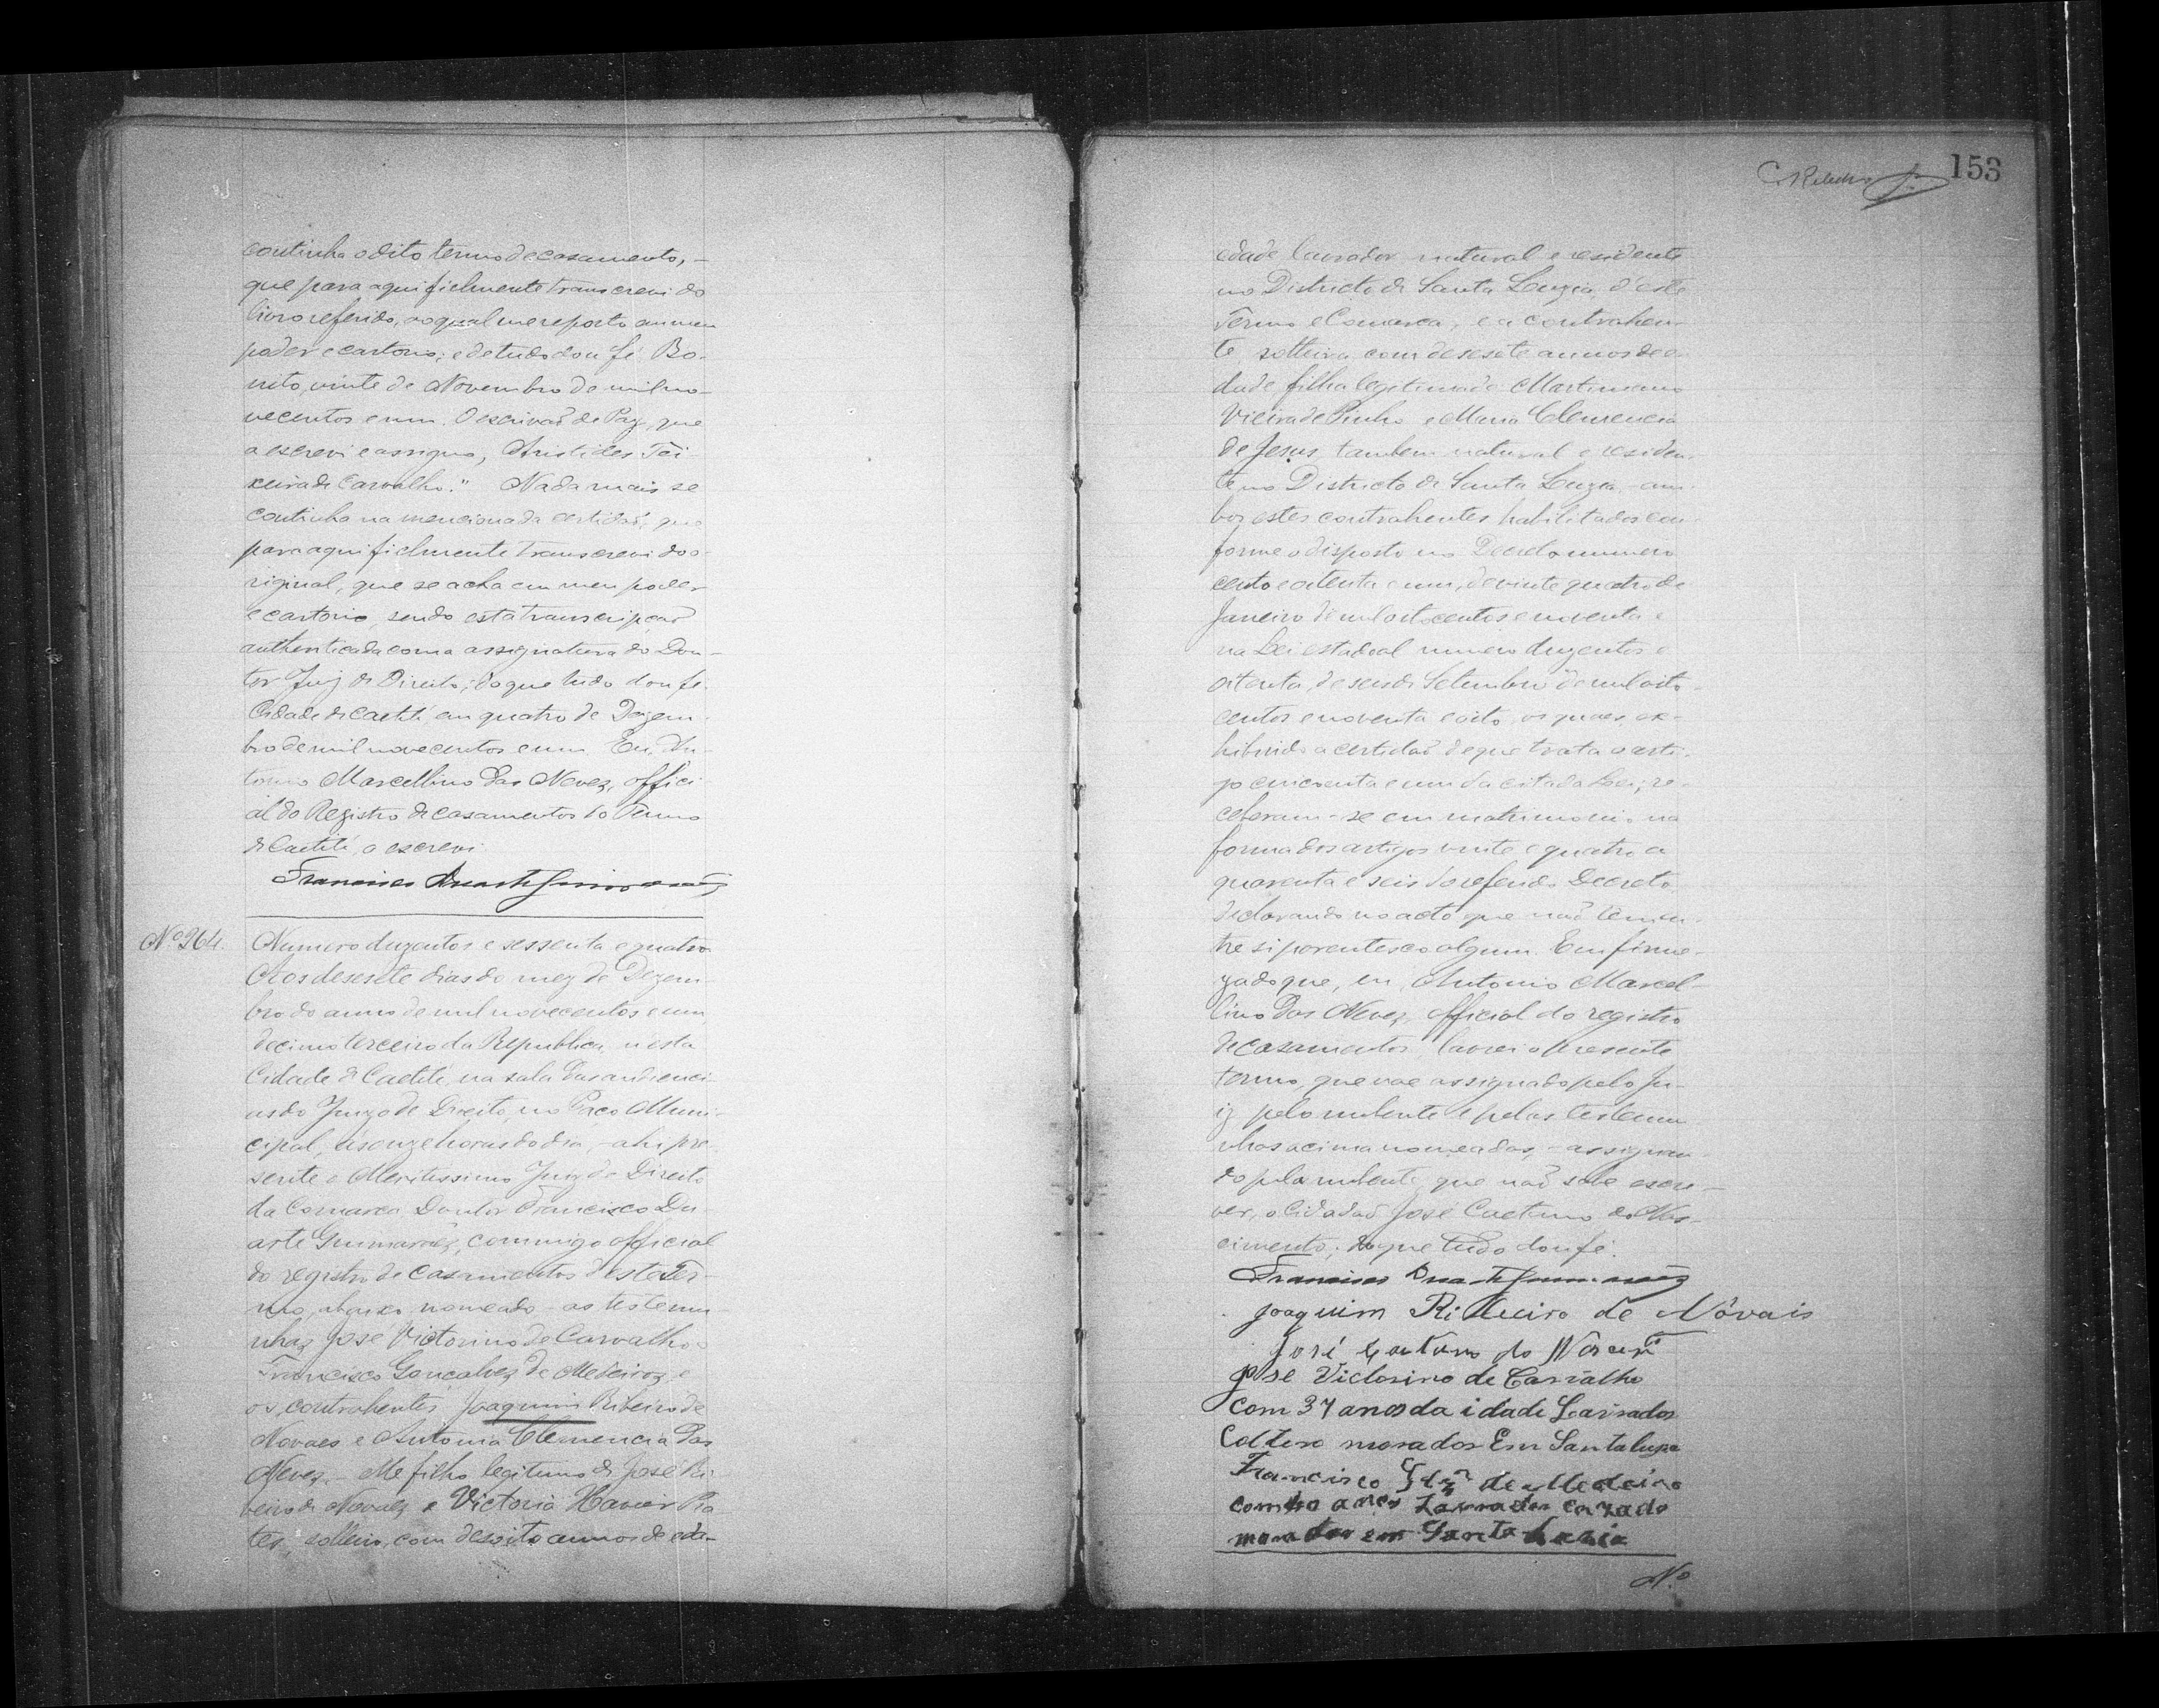 continha o dito termo de casamento, -
que para aqui fielmente transcrevi do
livro referido, ao qual me reporto em meu
poder e cartorio; e de tudo dou fé. Bo-
nito, vinte de Novembro de mil no-
vecentos e um. O escrivaõ de Paz, que
a escrevi e assigno, Aristides Tei-
xeira de Carvalho." Nada mais se
continha na mencionada certidaõ, que
para aqui fielmente transcrevi do o-
riginal, que se acha em meu poder
e cartorio, sendo esta transcripçaõ
authenticada com a assignatura do Dou-
tor Juiz de Direito; do que tudo dou fé.
Cidade de Caetité em quatro de Dezem-
bro de mil novecentos e um. Eu, An-
tonio Marcellino das Neves, offici-
al do Registro de casamentos do Termo
de Caetité, o escrevi.
Francisco Duarte Guimarães
Nº 264.
Numero duzentos e sessenta e quatro.
Aos desesete dias do mez de Dezem-
bro do anno de mil novecentos e um,
decimo terceiro da Republica, n'esta
Cidade de Caetité, na sala das audienci-
as do Juizo de Direito, no Paço Muni-
cipal, ás onze horas do dia, - ahi pre-
sente o Meritissimo Juiz de Direito
da Comarca Doutor Francisco Du-
arte Guimarães, commigo official
do registro de casamentos d'este Ter-
mo, abaixo nomeado - as testemu-
nhas José Victorino de Carvalho e
Francisco Gonçalves de Medeiros, e
os contrahentes Joaquim Ribeiro de
Novaes e Antonia Clemencia das
Neves. - Elle filho legitimo de José Ri-
beiro de Novaes e Victoria Xavier Pra-
tes, solteiro, com desoito annos de eda-
C. Ribeiro
153
edade lavrador natural e residente
no Districto de Santa Luzia d'este
Termo e Comarca; e a contrahen-
te, solteira com desesete annos de e-
dade filha legitima de Martiniano
Vieira de Pinho e Maria Clemencia
de Jesus, tambem natural e residen-
te no Districto de Santa Luzia - am-
bos estes contrahentes habilitados con-
forme o disposto no Decreto numero
cento e oitenta e um, de vinte quatro de
Janeiro de mil oitocentos e noventa e
na Lei estadoal numero duzentos e
oitenta, de seis de Setembro de mil oito-
centos e noventa e oito, os quaes, ex-
hibindo a certidaõ de que trata o arti-
go cincoenta e um da citada Lei; re-
ceberam-se em matrimonio na
forma dos artigos vinte e quatro a
quarenta e seis do referido Decreto
declarando no acto que naõ tem en-
tre si parentesco algum. Em firme-
za do que, eu, Antonio Marcel-
lino das Neves, official do registro
de casamentos, lavrei o presente
termo, que vae assignado pelo Ju-
iz, pelo nubente e pelas testemu-
nhas acima nomeadas, - assignan-
do pela nubente, que naõ sabe escre-
ver, o Cidadaõ José Caetano do Nas-
cimento; do que tudo dou fé.
Francisco Duarte Guimarães
Joaquim Ribeiro de Nóvais
José Caetano do
José Victorino de Carvalho
Com 34 anos da idade Lavrador
Coltero morador Em Santa luzia
Francisco de Medeiro
com anos Lavrador cazado
morador em Santa Luzia
Nº